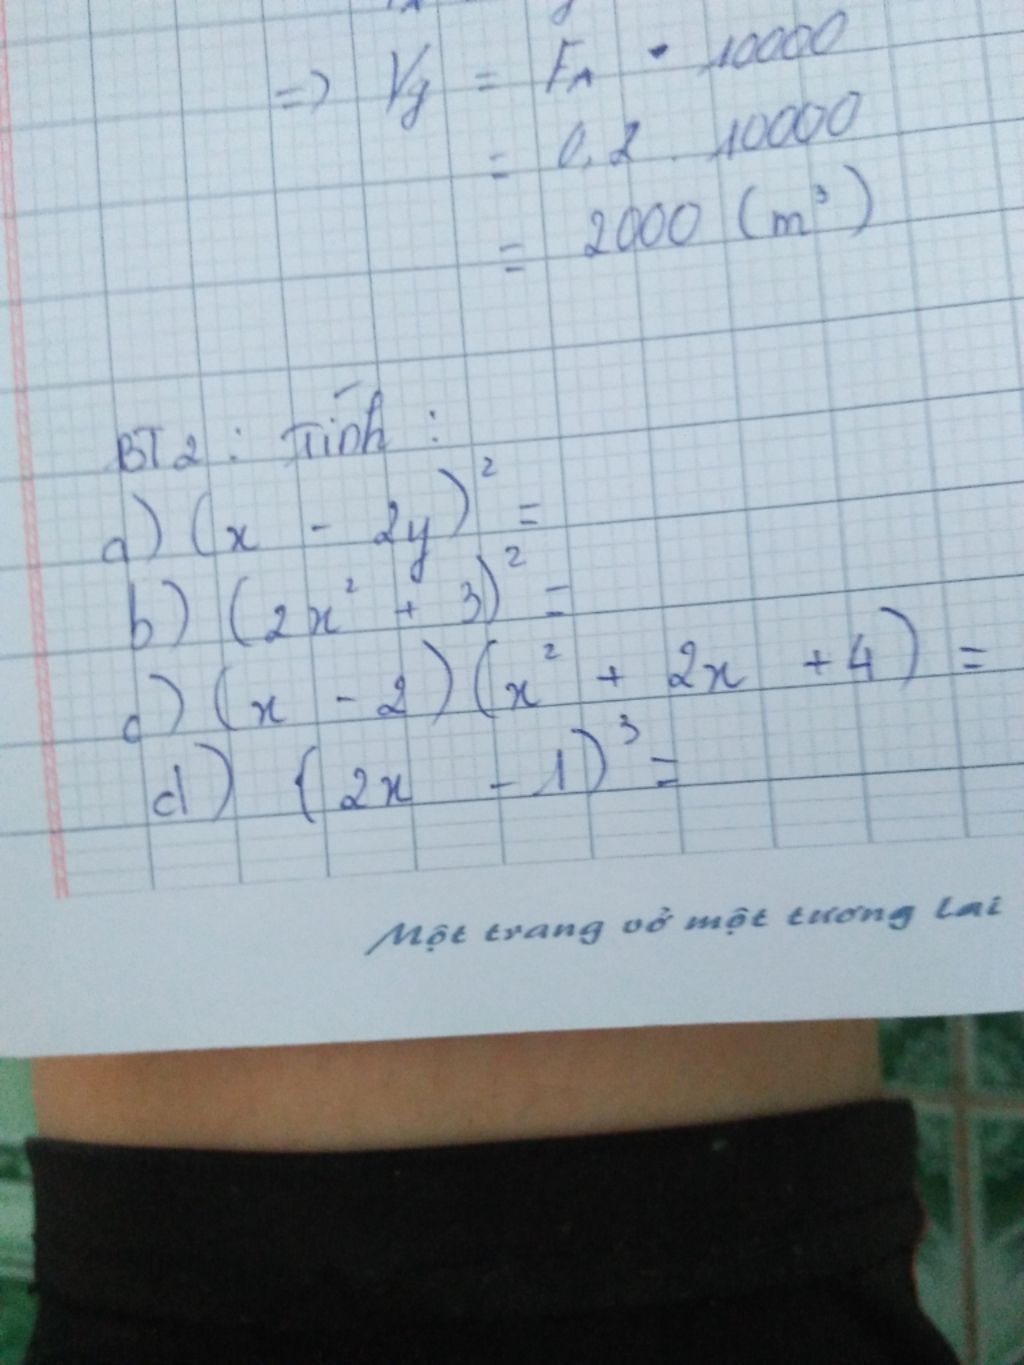 => Vg = FA . 10000
= 0.2 . 10000
= 2000 (m³)
BT2 : Tính :
a) (x - 2y)² =
b) (2x² + 3)² =
c) (x - 2)(x² + 2x + 4) =
d) (2x - 1)³ =
Một trang vở một tương lai